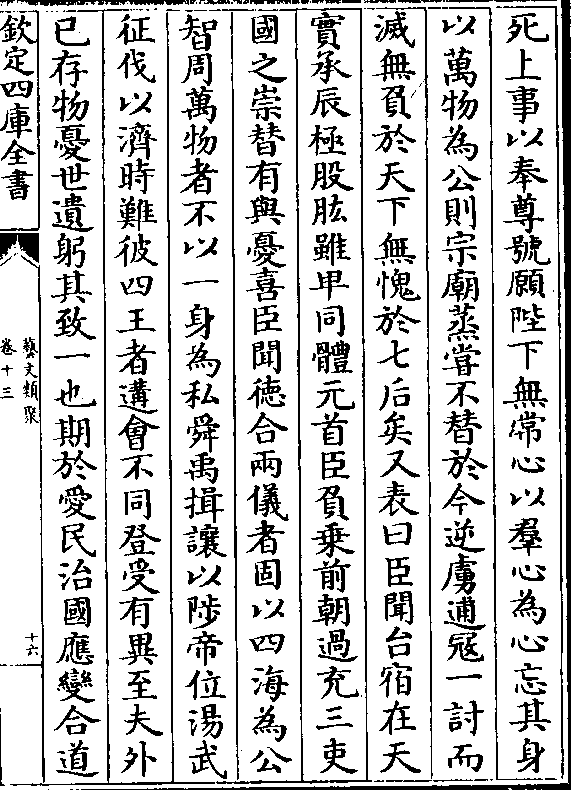 死上事以奉尊號願陛下無常心以羣心為心忘其身
以萬物為公則宗廟蒸甞不替於今逆虜逋冦一討而
滅無負於天下無愧於七后矣又表曰臣聞台宿在天
實承辰極股肱雖卑同體元首臣負乗前朝過充三吏
國之崇替有與憂喜臣聞徳合兩儀者固以四海為公
智周萬物者不以一身為私舜禹揖讓以陟帝位湯武
征伐以濟時難彼四王者遘會不同登受有異至夫外
已存物憂世遺躬其致一也期於愛民治國應變合道
欽定四庫全書
藝文類聚
卷十三
十六